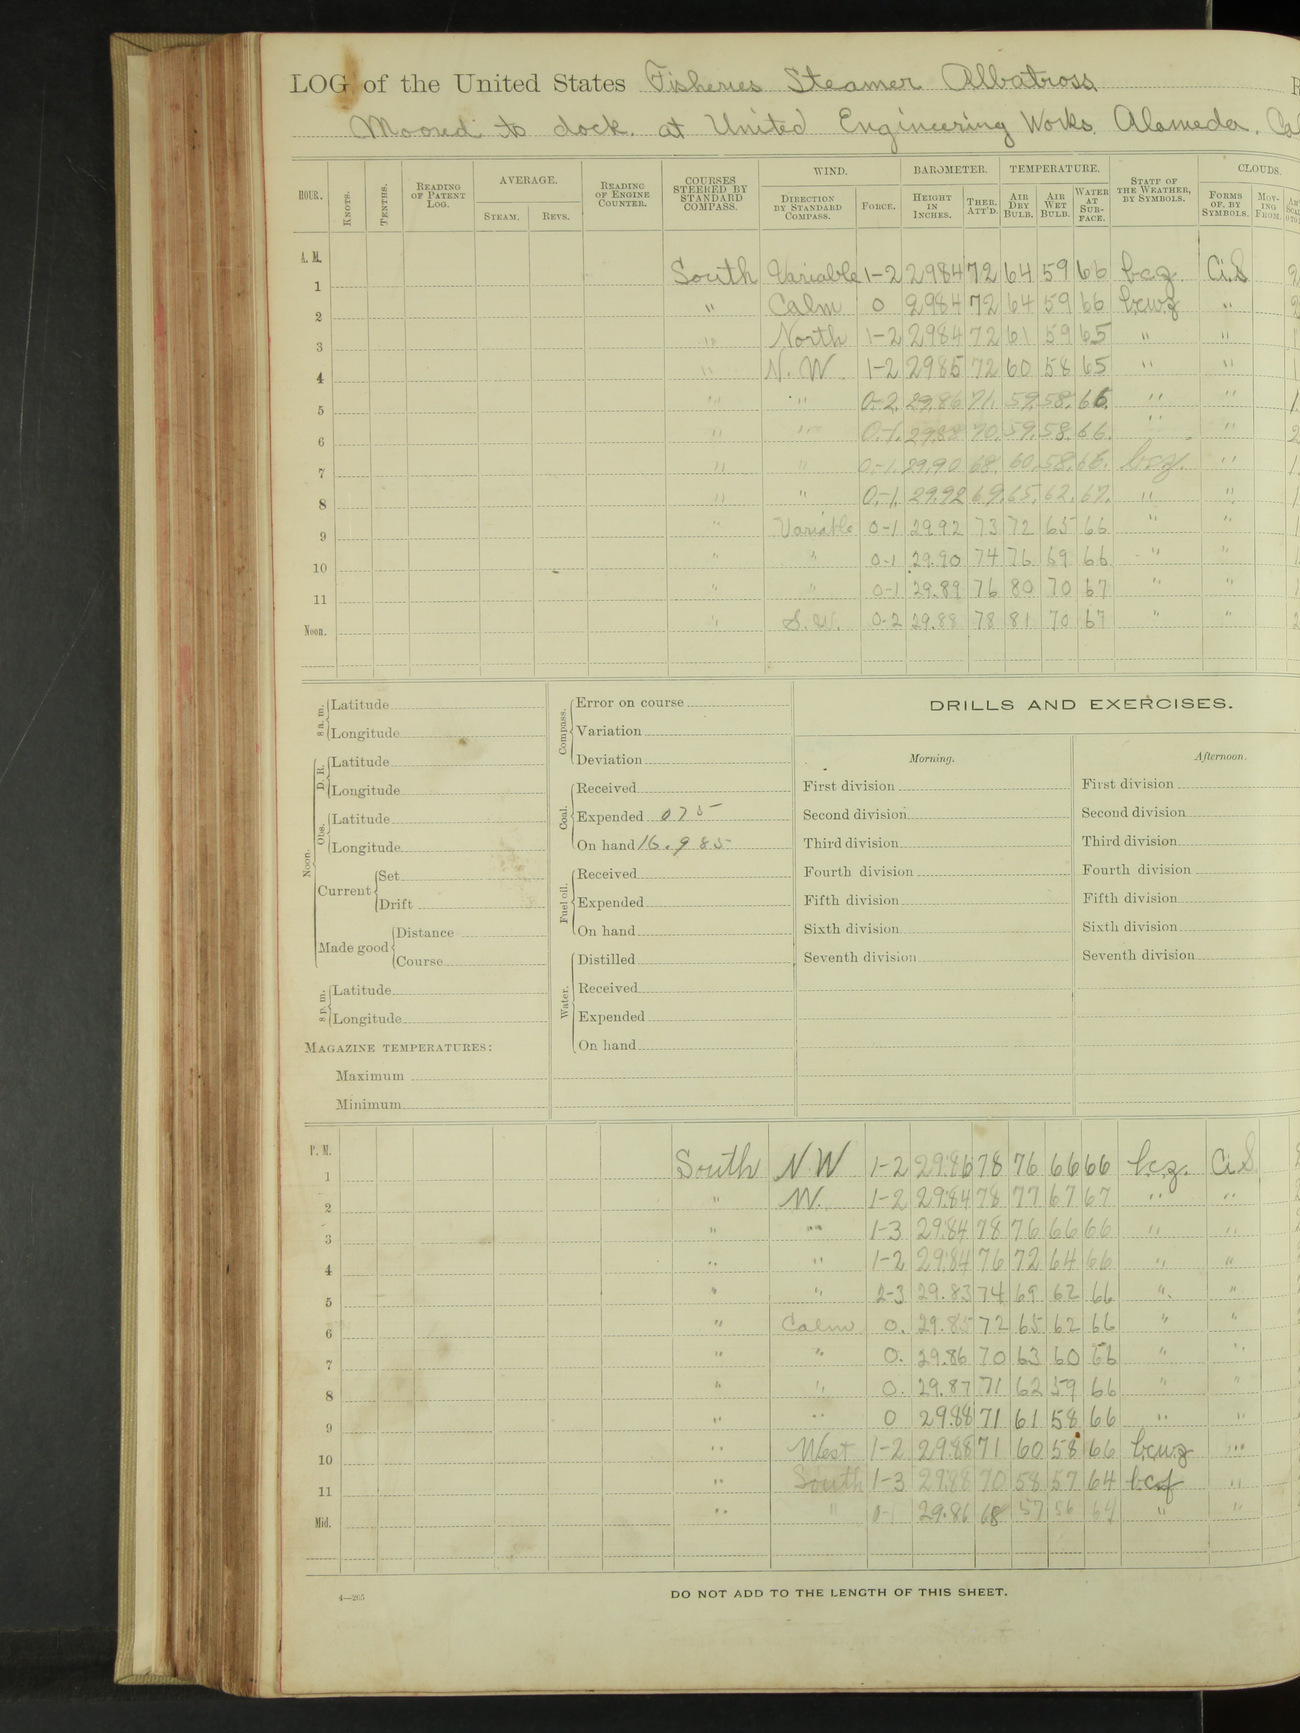 LOG of the United States Fisheries Steamer Albatross
Moored to dock. at United Engineering Works. Alameda. Cal
HOUR. KNOTS. TENTHS. READING OF PATENT LOG. AVERAGE. STEAM. REVS. READING OF ENGINE COUNTER. COURSES STEERED BY STANDARD COMPASS. WIND. DIRECTION BY STANDARD COMPASS. FORCE. BAROMETER. HEIGHT IN INCHES. THER. ATT'D. TEMPERATURE. AIR DRY BULB. AIR WET BULB. WATER AT SURFACE. STATE OF THE WEATHER, BY SYMBOLS. CLOUDS. FORMS OF, BY SYMBOLS. MOVING FROM.
A. M.
1 South Variable 1-2 2984 72 64 59 66 bcz Ci.S
2 " Calm 0 2984 72 64 59 66 bcwz "
3 " North 1-2 2984 72 61 59 65 " "
4 " N. W. 1-2 2985 72 60 58 65 " "
5 " " 0-2. 29.86 71. 59. 58. 66. " "
6 " " 0.-1. 29.88 70. 59. 58. 66. " "
7 " " 0.-1. 29.90 68. 60. 58. 66. bcz. "
8 " " 0.-1. 29.92 69. 65. 62. 67. " "
9 " Variable 0-1 29.92 73 72 65 66 " "
10 " " 0-1 29.90 74 76 69 66 " "
11 " " 0-1 29.89 76 80 70 67 " "
Noon. " S.W. 0-2 29.88 78 81 70 67 " "
8 a. m. Latitude
Longitude
Noon. D. R. Latitude
Longitude
Obs. Latitude
Longitude
Current Set
Drift
Made good Distance
Course
8 p. m. Latitude
Longitude
MAGAZINE TEMPERATURES:
Maximum
Minimum
Compass. Error on course
Variation
Deviation
Coal. Received
Expended 075
On hand 16.985
Fuel oil. Received
Expended
On hand
Water. Distilled
Received
Expended
On hand
DRILLS AND EXERCISES.
Morning. Afternoon.
First division First division
Second division Second division
Third division Third division
Fourth division Fourth division
Fifth division Fifth division
Sixth division Sixth division
Seventh division Seventh division
P. M.
1 South N.W 1-2 29.86 78 76 66 66 bcz. Ci S.
2 " W. 1-2 29.84 78 77 67 67 " "
3 " " 1-3 29.84 78 76 66 66 " "
4 " " 1-2 29.84 76 72 64 66 " "
5 " " 2-3 29.83 74 69 62 66 " "
6 " Calm 0. 29.85 72 65 62 66 " "
7 " " 0. 29.86 70 63 60 66 " "
8 " " 0. 29.87 71 62 59 66 " "
9 " " 0 29.88 71 61 58 66 " "
10 " West 1-2 29.88 71 60 58 66 bcwz "
11 " South 1-3 29.88 70 58 57 64 bcf "
Mid. " " 0-1 29.86 68 57 56 64 " "
4—205
DO NOT ADD TO THE LENGTH OF THIS SHEET.